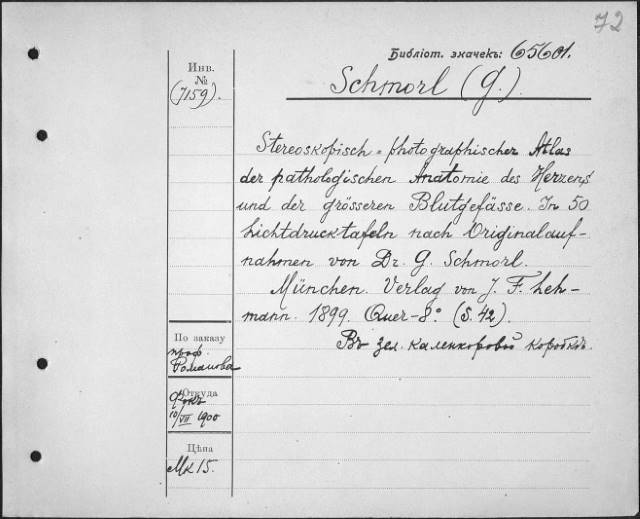 72
Библіот. значекъ: 65601.
Инв.
№
(7159).
Schmorl (G.).
Stereoskopisch-photographischer Atlas
der pathologischen Anatomie des Herzens
und der grösseren Blutgefässe. In 50
Lichtdrucktafeln nach Originalauf-
nahmen von Dr. G. Schmorl.
München. Verlag von J. F. Leh-
mann. 1899. Quer-8° (S. 42).
Въ зел. каленкоровой коробкѣ.
По заказу
проф.
Романова
Откуда
Фокъ
10/VII 1900
Цѣна
Mk 15.